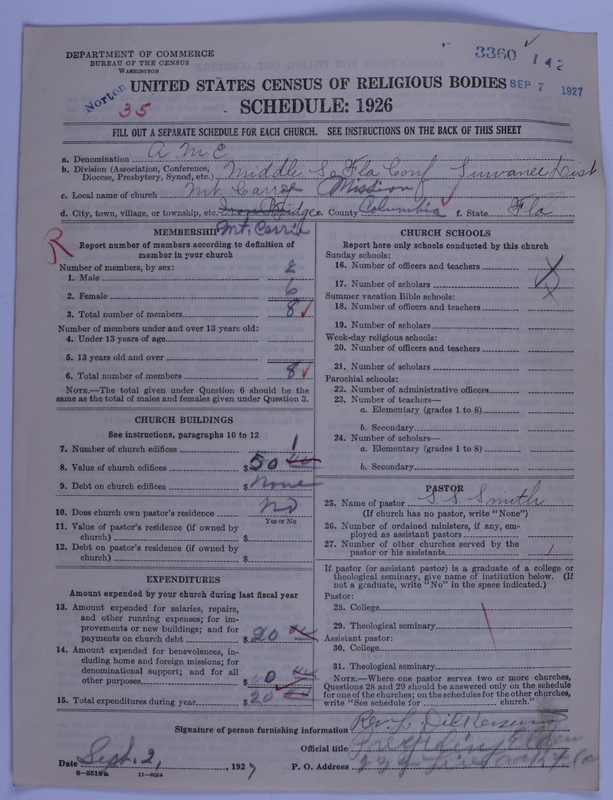 3360 142
DEPARTMENT OF COMMERCE
BUREAU OF THE CENSUS
WASHINGTON
Norton
35
UNITED STATES CENSUS OF RELIGIOUS BODIES
SEP 7 1927
SCHEDULE: 1926
FILL OUT A SEPARATE SCHEDULE FOR EACH CHURCH. SEE INSTRUCTIONS ON THE BACK OF THIS SHEET
a. Denomination A M E
b. Division (Association, Conference, Diocese, Presbytery, Synod, etc.) Middle Fla Conf Suwanee Dist
c. Local name of church Mt. Mission
d. City, town, village, or township, etc. e. County Columbia f. State Fla
R
MEMBERSHIP Mt.
Report number of members according to definition of
member in your church
Number of members, by sex:
1. Male 2
2. Female 6
3. Total number of members 8
Number of members under and over 13 years old:
4. Under 13 years of age
5. 13 years old and over
6. Total number of members 8
NOTE.—The total given under Question 6 should be the
same as the total of males and females given under Question 3.
CHURCH BUILDINGS
See instructions, paragraphs 10 to 12
7. Number of church edifices 1
8. Value of church edifices $ 50
9. Debt on church edifices $ None
10. Does church own pastor's residence No
Yes or No
11. Value of pastor's residence (if owned by
church) $
12. Debt on pastor's residence (if owned by
church) $
EXPENDITURES
Amount expended by your church during last fiscal year
13. Amount expended for salaries, repairs,
and other running expenses; for im-
provements or new buildings; and for
payments on church debt $ 20
14. Amount expended for benevolences, in-
cluding home and foreign missions; for
denominational support; and for all
other purposes $
15. Total expenditures during year $ 20
CHURCH SCHOOLS
Report here only schools conducted by this church
Sunday schools:
16. Number of officers and teachers
17. Number of scholars
Summer vacation Bible schools:
18. Number of officers and teachers
19. Number of scholars
Week-day religious schools:
20. Number of officers and teachers
21. Number of scholars
Parochial schools:
22. Number of administrative officers
23. Number of teachers—
a. Elementary (grades 1 to 8)
b. Secondary
24. Number of scholars—
a. Elementary (grades 1 to 8)
b. Secondary
PASTOR
25. Name of pastor S S Smith
(If church has no pastor, write "None")
26. Number of ordained ministers, if any, em-
ployed as assistant pastors
27. Number of other churches served by the
pastor or his assistants 1
If pastor (or assistant pastor) is a graduate of a college or
theological seminary, give name of institution below. (If
not a graduate, write "No" in the space indicated.)
Pastor:
28. College
29. Theological seminary
Assistant pastor:
30. College
31. Theological seminary
NOTE.—Where one pastor serves two or more churches,
Questions 28 and 29 should be answered only on the schedule
for one of the churches; on the schedules for the other churches,
write "See schedule for church."
Signature of person furnishing information Rev.
Official title Presiding Elder
Date Sept. 2, 1927 P. O. Address
8—5519a 11—9064